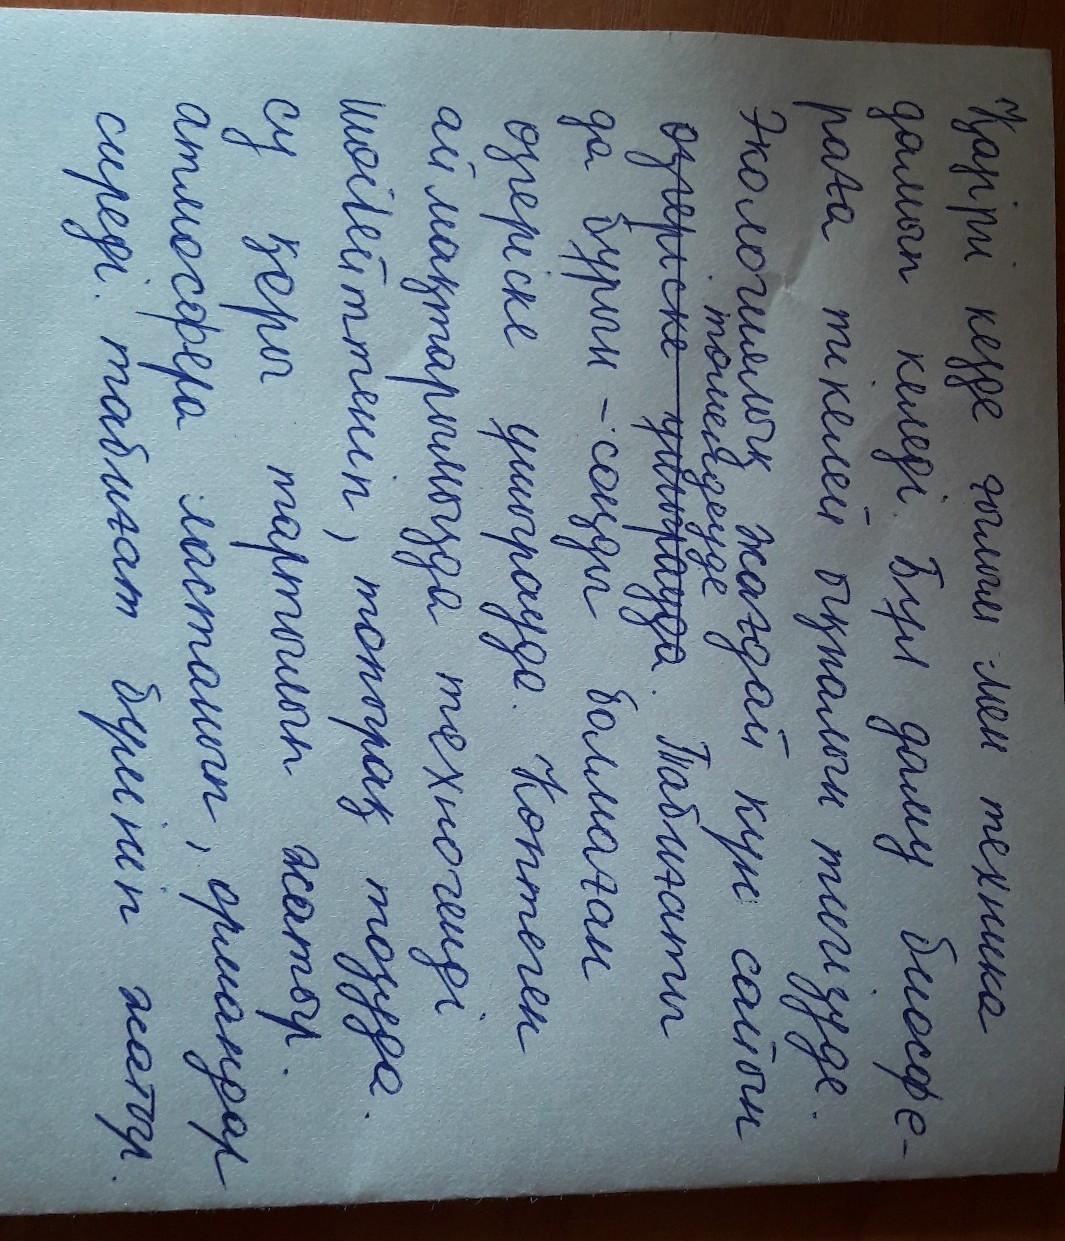 Қазіргі кезде ғылым мен техника
дамып келеді. Бұл даму биосфе-
раға тікелей ықпалын тигізуде.
Экологиялық жағдай күн сайын
төмендеуде
өзгеріске ұшырауда. Табиғаты
да бұрын-соңды болмаған
өзгеріске ұшырауда. Көптеген
аймақтарымызда техногенді
шөлейттеніп, топырақ тозуда.
су қоры тартылып жатыр.
атмосфера ластанып, ормандар
сиреді. табиғат бүлініп жатыр.